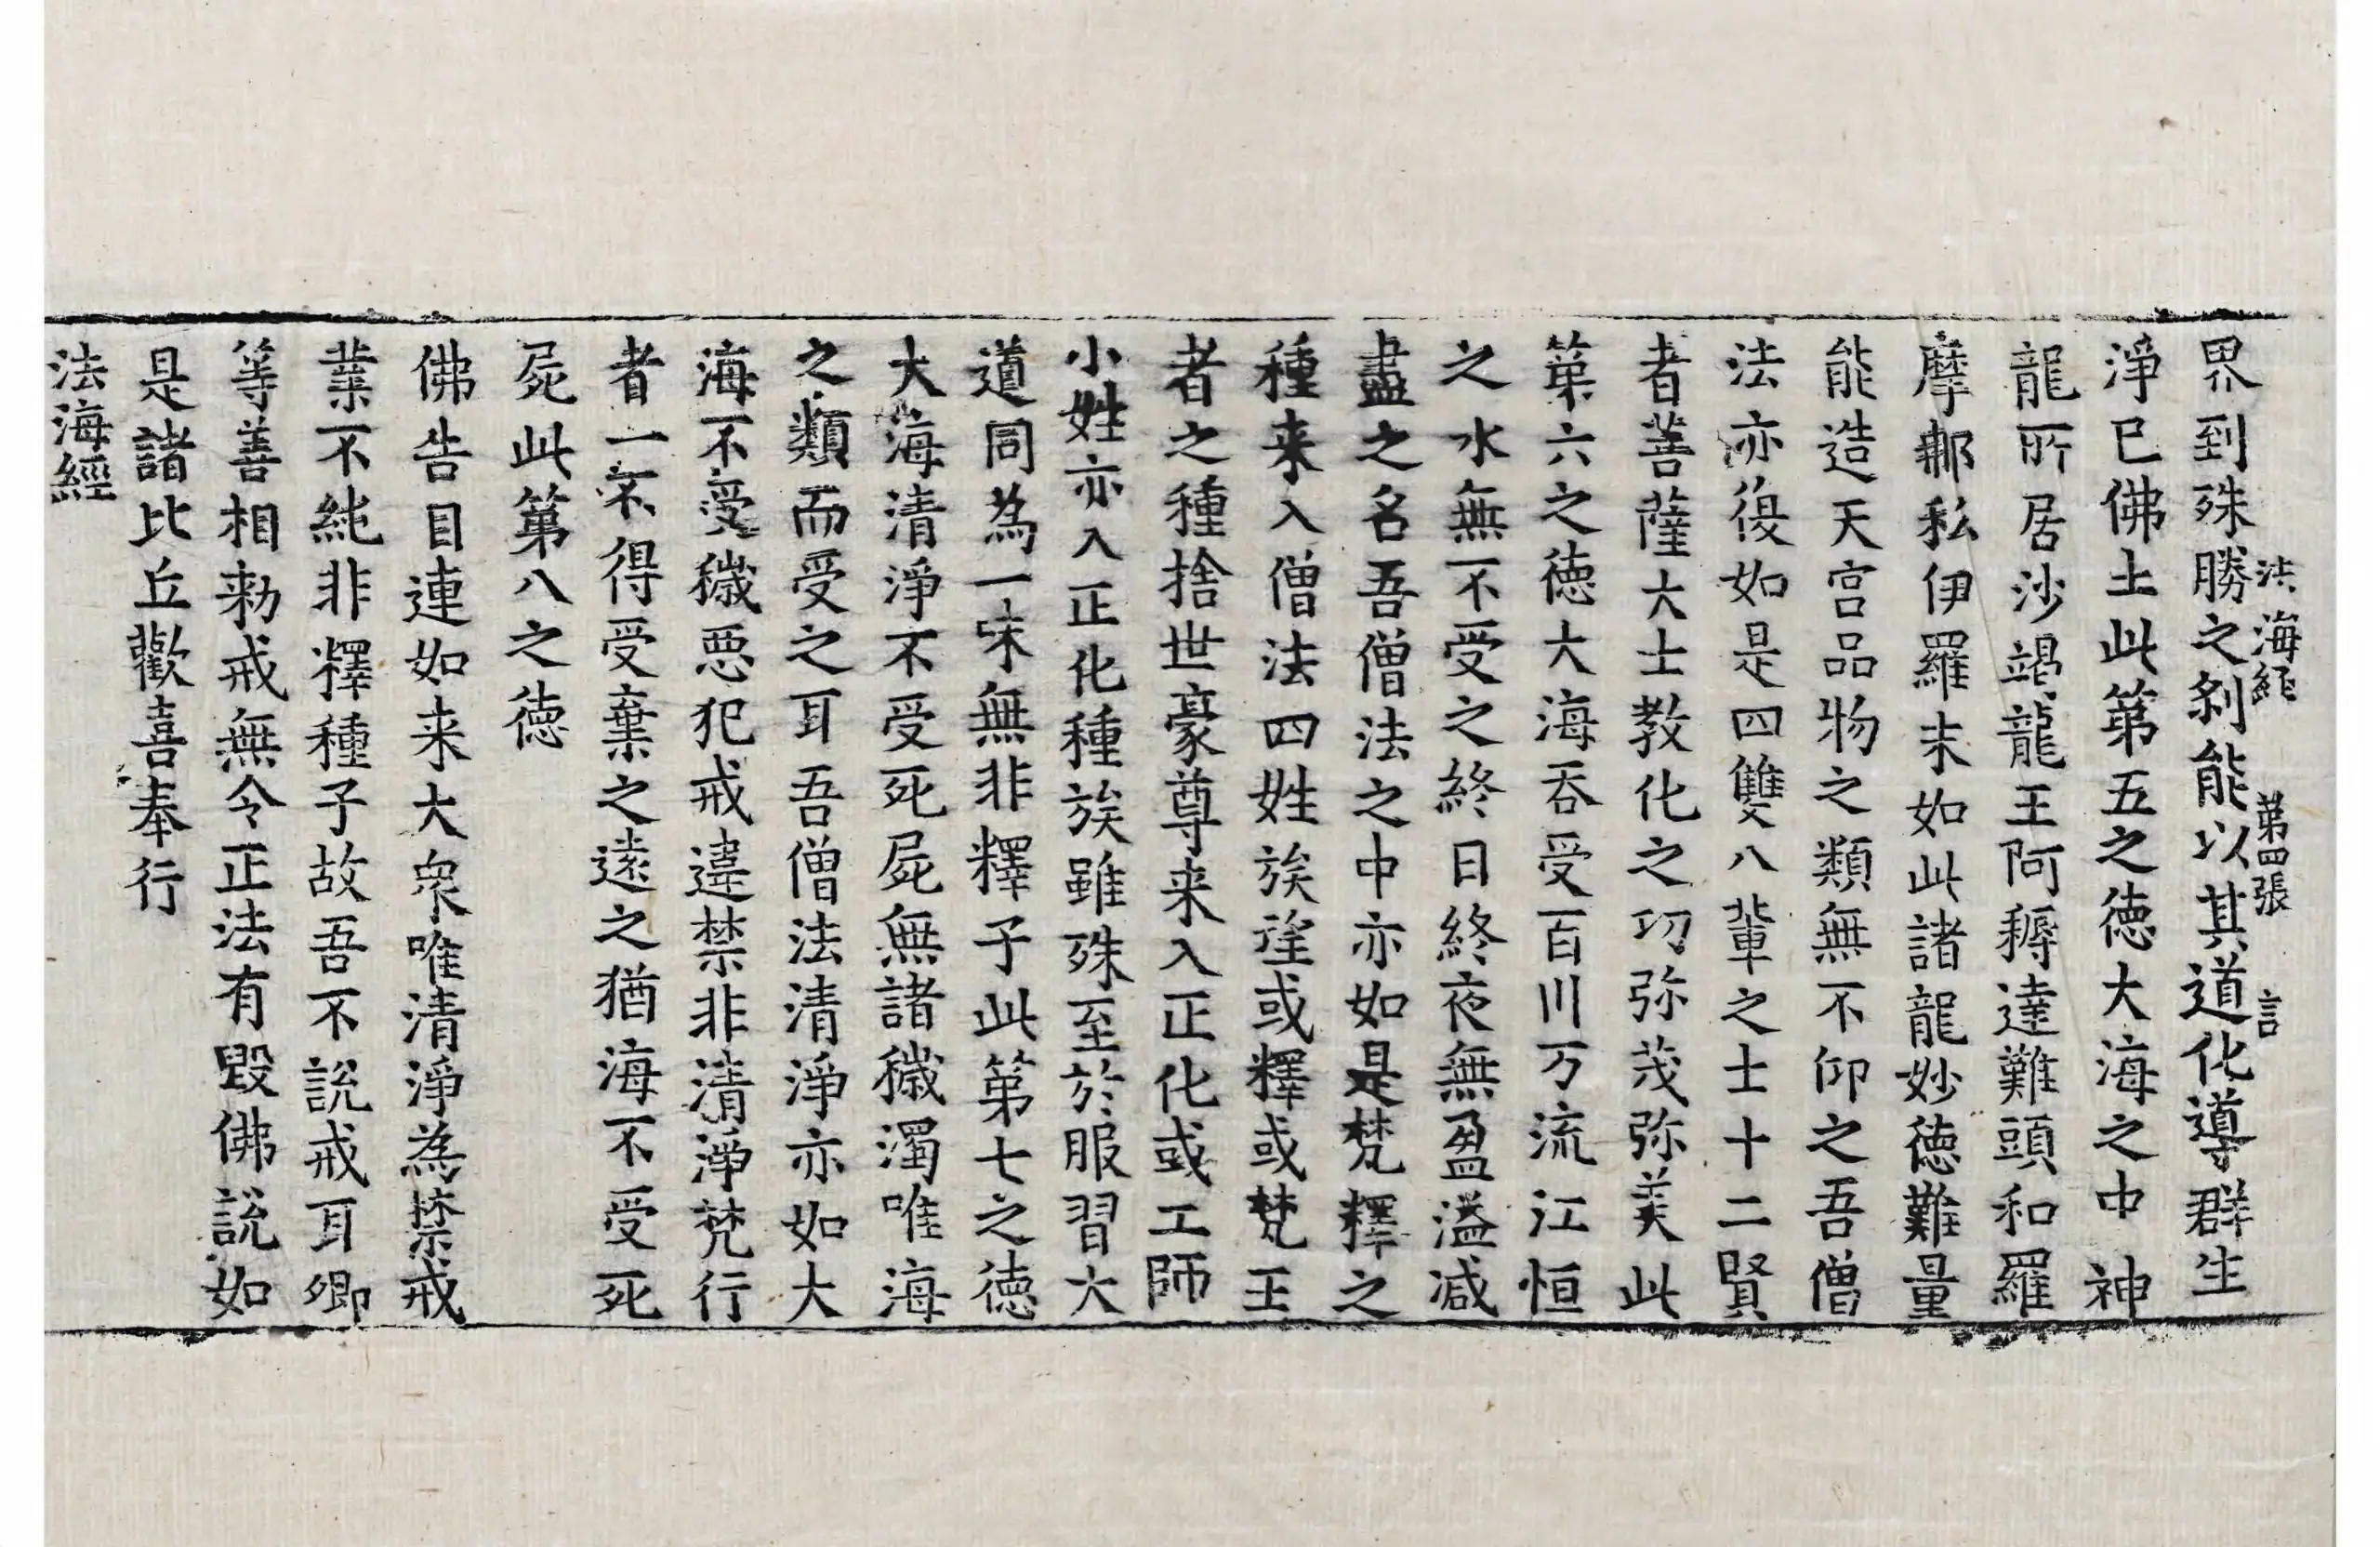 法海經 第四張 言
界到殊勝之剎能以其道化導群生
淨已佛土此第五之德大海之中神
龍所居沙竭龍王阿耨達難頭和羅
摩那私伊羅末如此諸龍妙德難量
能造天宮品物之類無不仰之吾僧
法亦復如是四雙八輩之士十二賢
者菩薩大士教化之功弥茂弥美此
第六之德大海吞受百川万流江恒
之水無不受之終日終夜無盈溢減
盡之名吾僧法之中亦如是梵釋之
種来入僧法四姓族望或釋或梵王
者之種捨世豪尊来入正化或工師
小姓亦入正化種族雖殊至於服習大
道同為一味無非釋子此第七之德
大海清淨不受死屍無諸穢濁唯海
之類而受之耳吾僧法清淨亦如大
海不受穢惡犯戒違禁非清淨梵行
者一不得受棄之遠之猶海不受死
屍此第八之德
佛告目連如来大衆唯清淨為禁戒
業不純非釋種子故吾不說戒耳卿
等善相勅戒無令正法有毀佛說如
是諸比丘歡喜奉行
法海經